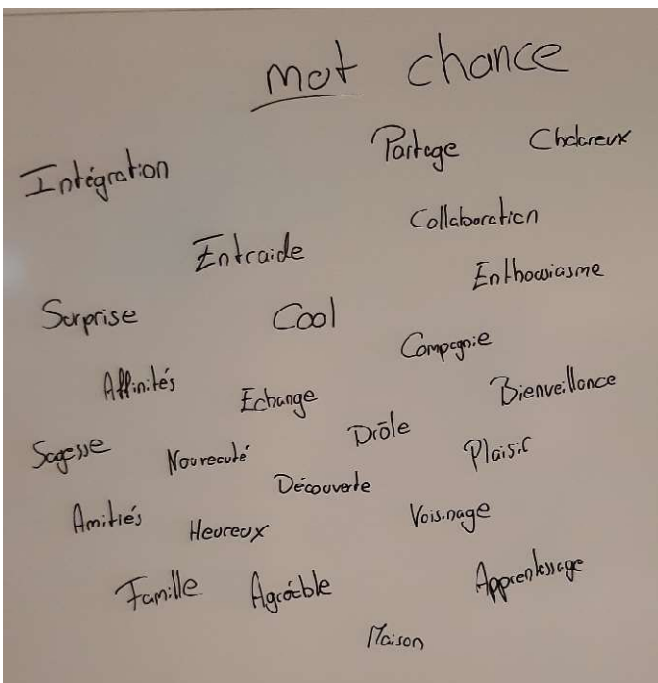 mot chance
Partage Chalareux
Intégration
Collaboration
Entraide
Enthousiasme
Surprise Cool
Compagnie
Affinités Echange Bienveillance
Drôle
Sagesse Nouveauté Plaisir
Découverte
Amitiés Heureux Voisinage
Famille Agréable Apprentissage
Maison